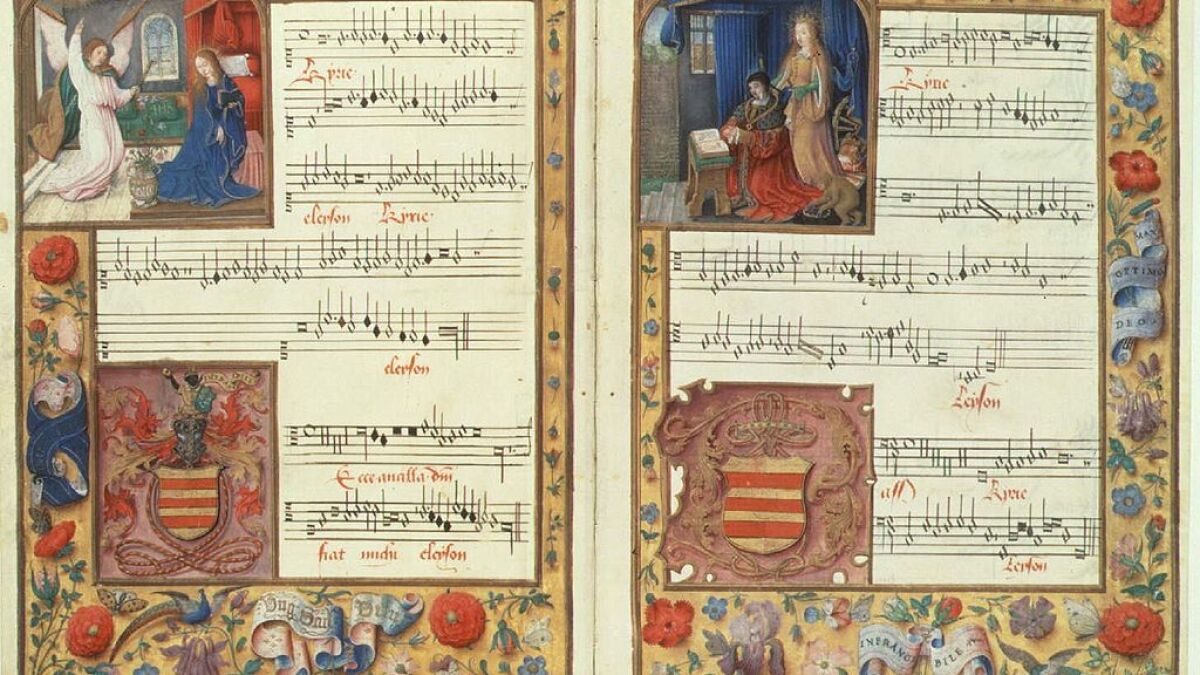 Kyrie
eleyson Kyrie
eleyson
Ecce ancilla dm̄
fiat michi eleyson
Kyrie
Leyson
Kyrie
Leyson
OPTIMO
DEO
INFRANG
BILE